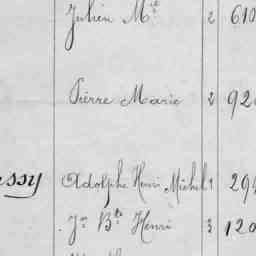 Julien M.it 2 610
Pierre Marie 2 92
ssy Adolphe Henri Michel 1 29
Jn Bte Henri 3 120